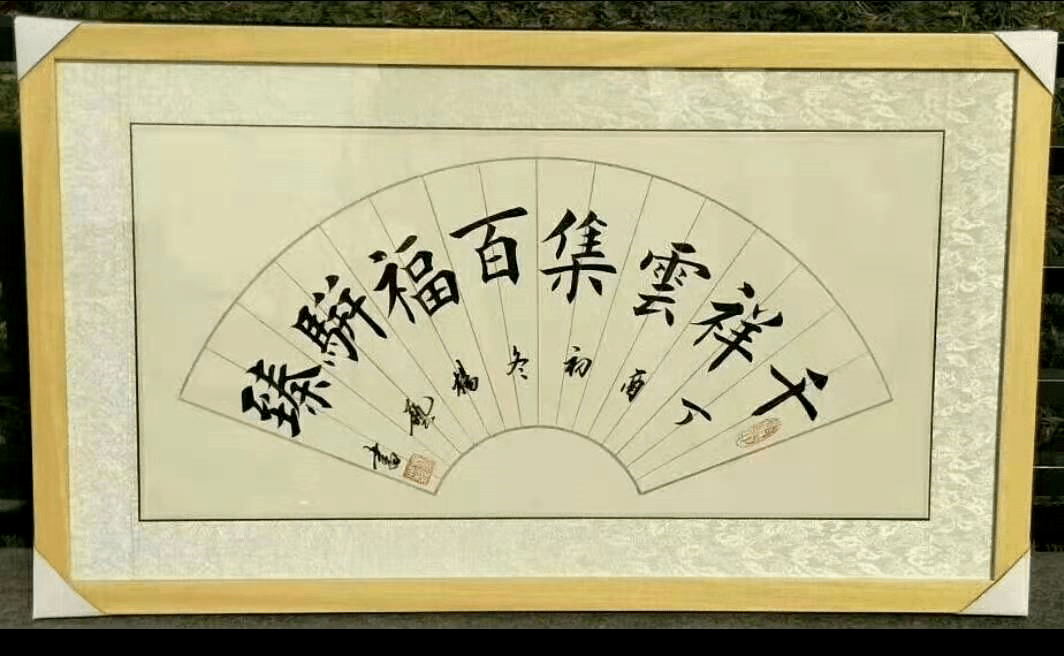 千祥雲集百福駢臻
丁酉初冬楊
書